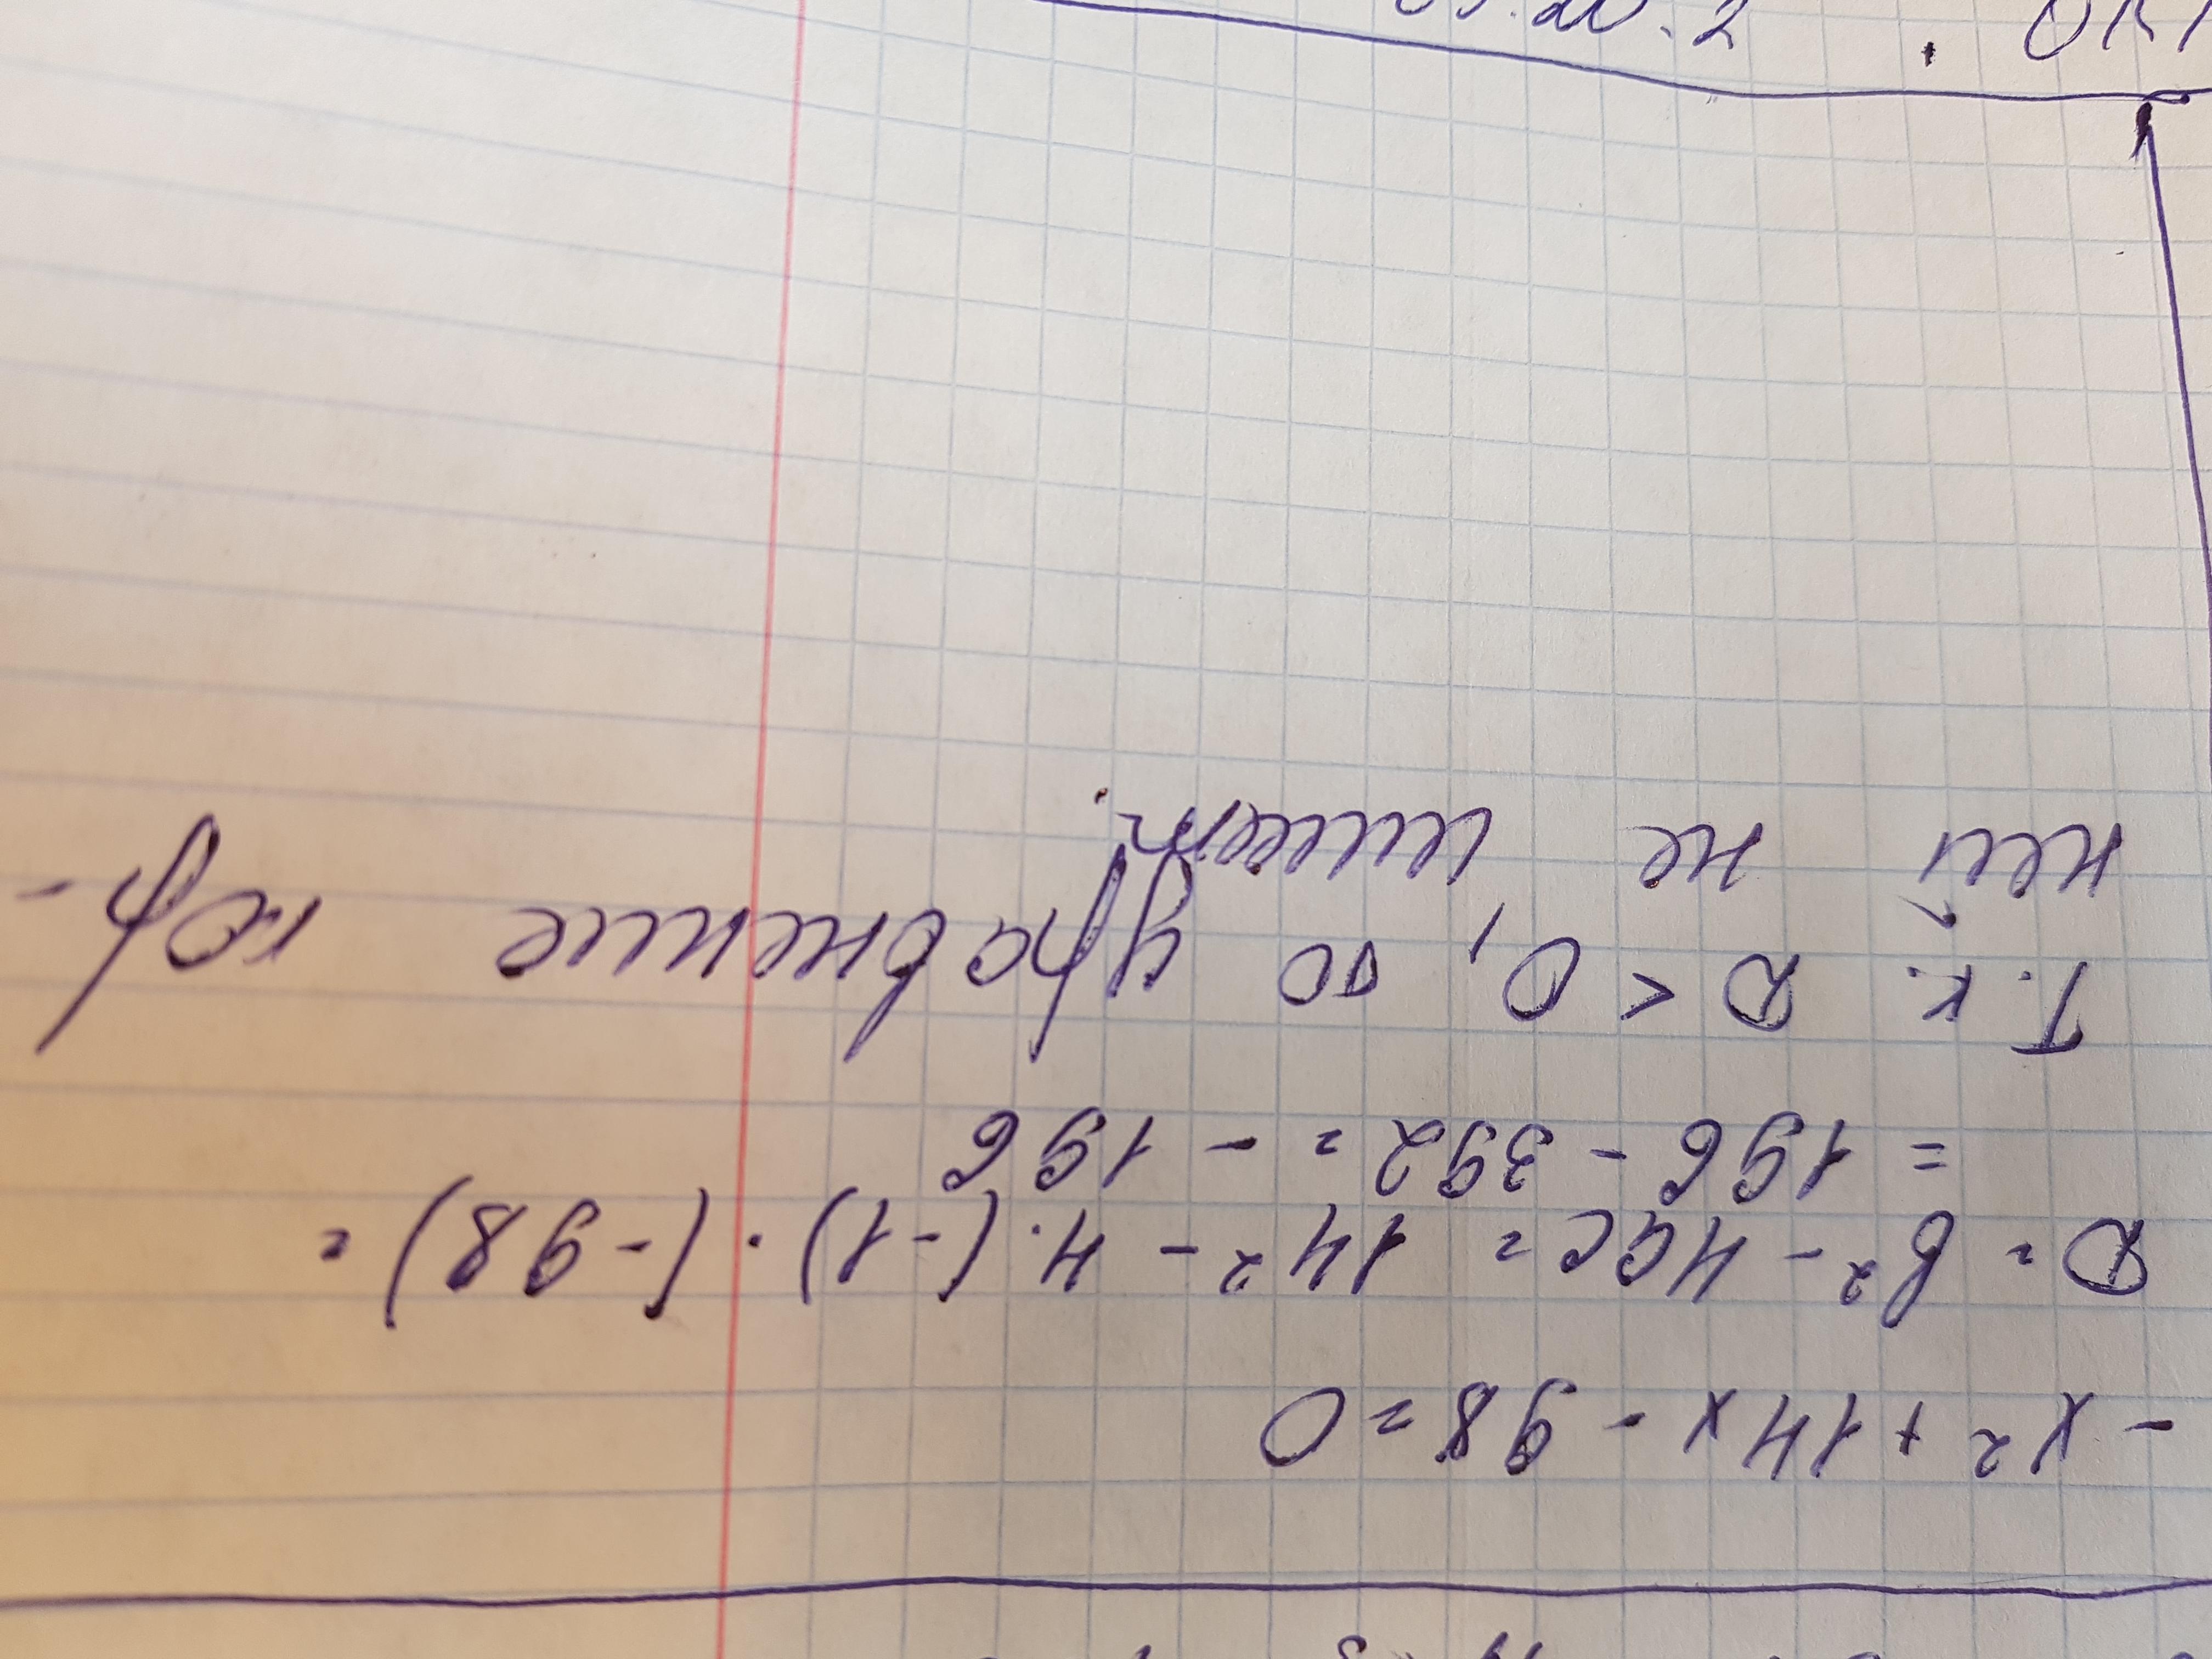 -x² + 14x - 98 = 0
D = b² - 4ac = 14² - 4·(-1)·(-98) =
= 196 - 392 = -196
Т.к. D < 0, то уравнение кор-
ней не имеет.